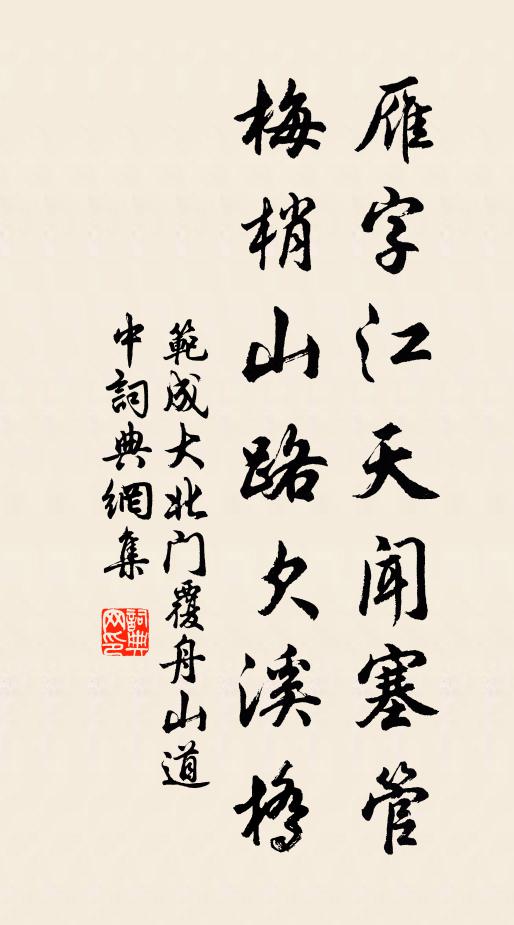 雁字江天闻塞管
梅梢山路欠溪橋
範成大北门覆舟山道
中詞典網集
詞典
网印